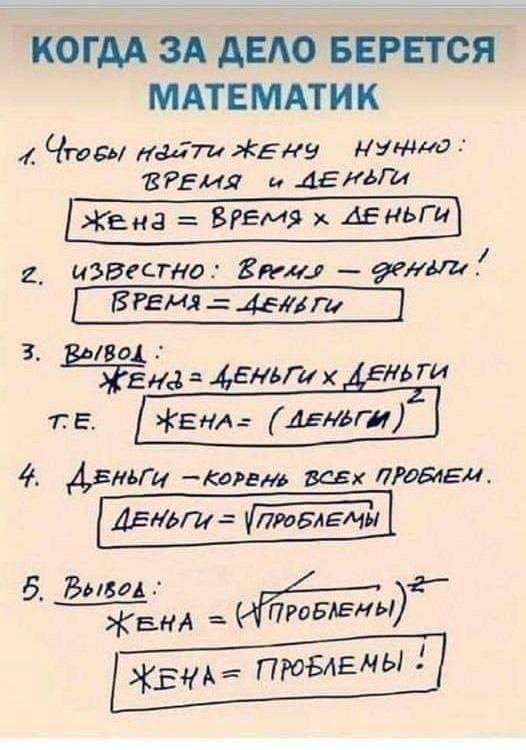 КОГДА ЗА ДЕЛО БЕРЕТСЯ
МАТЕМАТИК
1. Чтобы найти жену нужно:
время и деньги
жена = время x деньги
2. известно: Время – деньги!
время = деньги
3. Вывод:
жена = деньги x деньги
т.е. жена = (деньги)²
4. Деньги – корень всех проблем.
деньги = √проблемы
5. Вывод:
жена = (√проблемы)²
жена = проблемы!